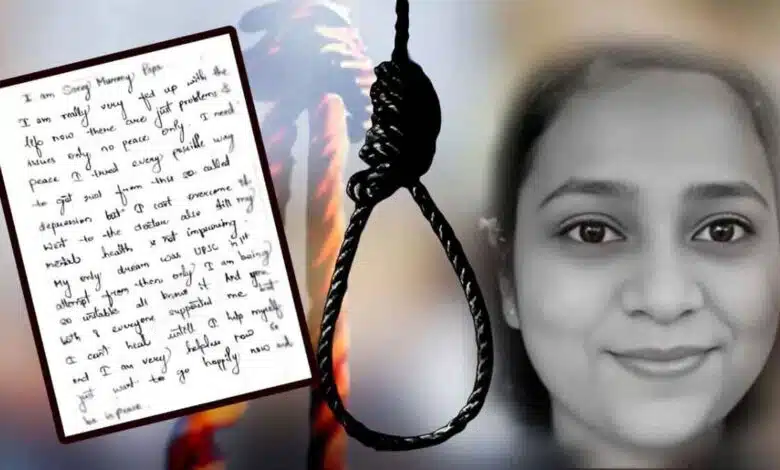 I am Sorry Mummy Papa
I am really very fed up with the
life now there are just problems &
issues only no peace only. I need
peace I tried every possible way
to get rid from this so called
depression but I cant overcome it
Went to the doctors also still my
mental health is not improving
My only dream was UPSC 1st
attempt from then only I am being
so unstable all know it. And you
both & everyone supported me but
I can't heal untill I help myself
and I am very helpless now so
just want to go happily now and
be in peace.